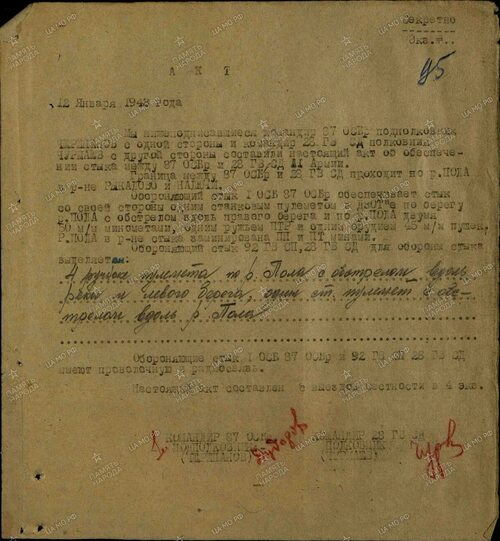 Секретно
Экз.№..
95
А К Т
12 Января 1943 года
Мы нижеподписавшиеся командир 87 ОСБр подполковник
с одной стороны и командир 28 ГВ СД полковник
с другой стороны составили настоящий акт об обеспече-
нии стыка между 87 ОСБр и 28 ГВ СД 11 Армии.
Граница между 87 ОСБр и 28 ГВ СД проходит по р.ПОЛА
в р-не РИКАДОВО и
Обороняющий стык 1 ОСБ 87 ОСБр обеспечивает стык
со своей стороны одним станковым пулеметом в ДЗОТ'е по берегу
р.ПОЛА с обстрелом вдоль правого берега и по р.ПОЛА двумя
50 м/м минометами, одним ружьем ПТР и одним орудием 45 м/м пушек,
р.ПОЛА в р-не стыка заминирована ПП и ПТ минами.
Обороняющий стык СП, 28 ГВ СД для обороны стыка
выделяет:
4 ручных пулемета по р. Пола с обстрелом вдоль
реки и левого берега, один ст. пулемет с обс-
трелом вдоль р Пола
Обороняющие стык 1 ОСБ 87 ОСБр и 92 ГВ СП 28 ГВ СД
имеют проволочную и радиосвязь.
Настоящий акт составлен с выездом местности в 4 экз.
КОМАНДИР 87 ОСБр
КОМАНДИР 28 ГВ СД
ПОДПОЛКОВНИК
ПОЛКОВНИК